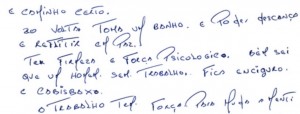 e caminho certo.
ao volta toma um banho. e Poder descança
e refletir em Paz.
Ter firmeza e Força Psicologico. Bem sei
que um homem. sem Trabalho. Fica enciguro.
e cabisbaxo.
o Trabalho Tem. Força Para Muda a Menti